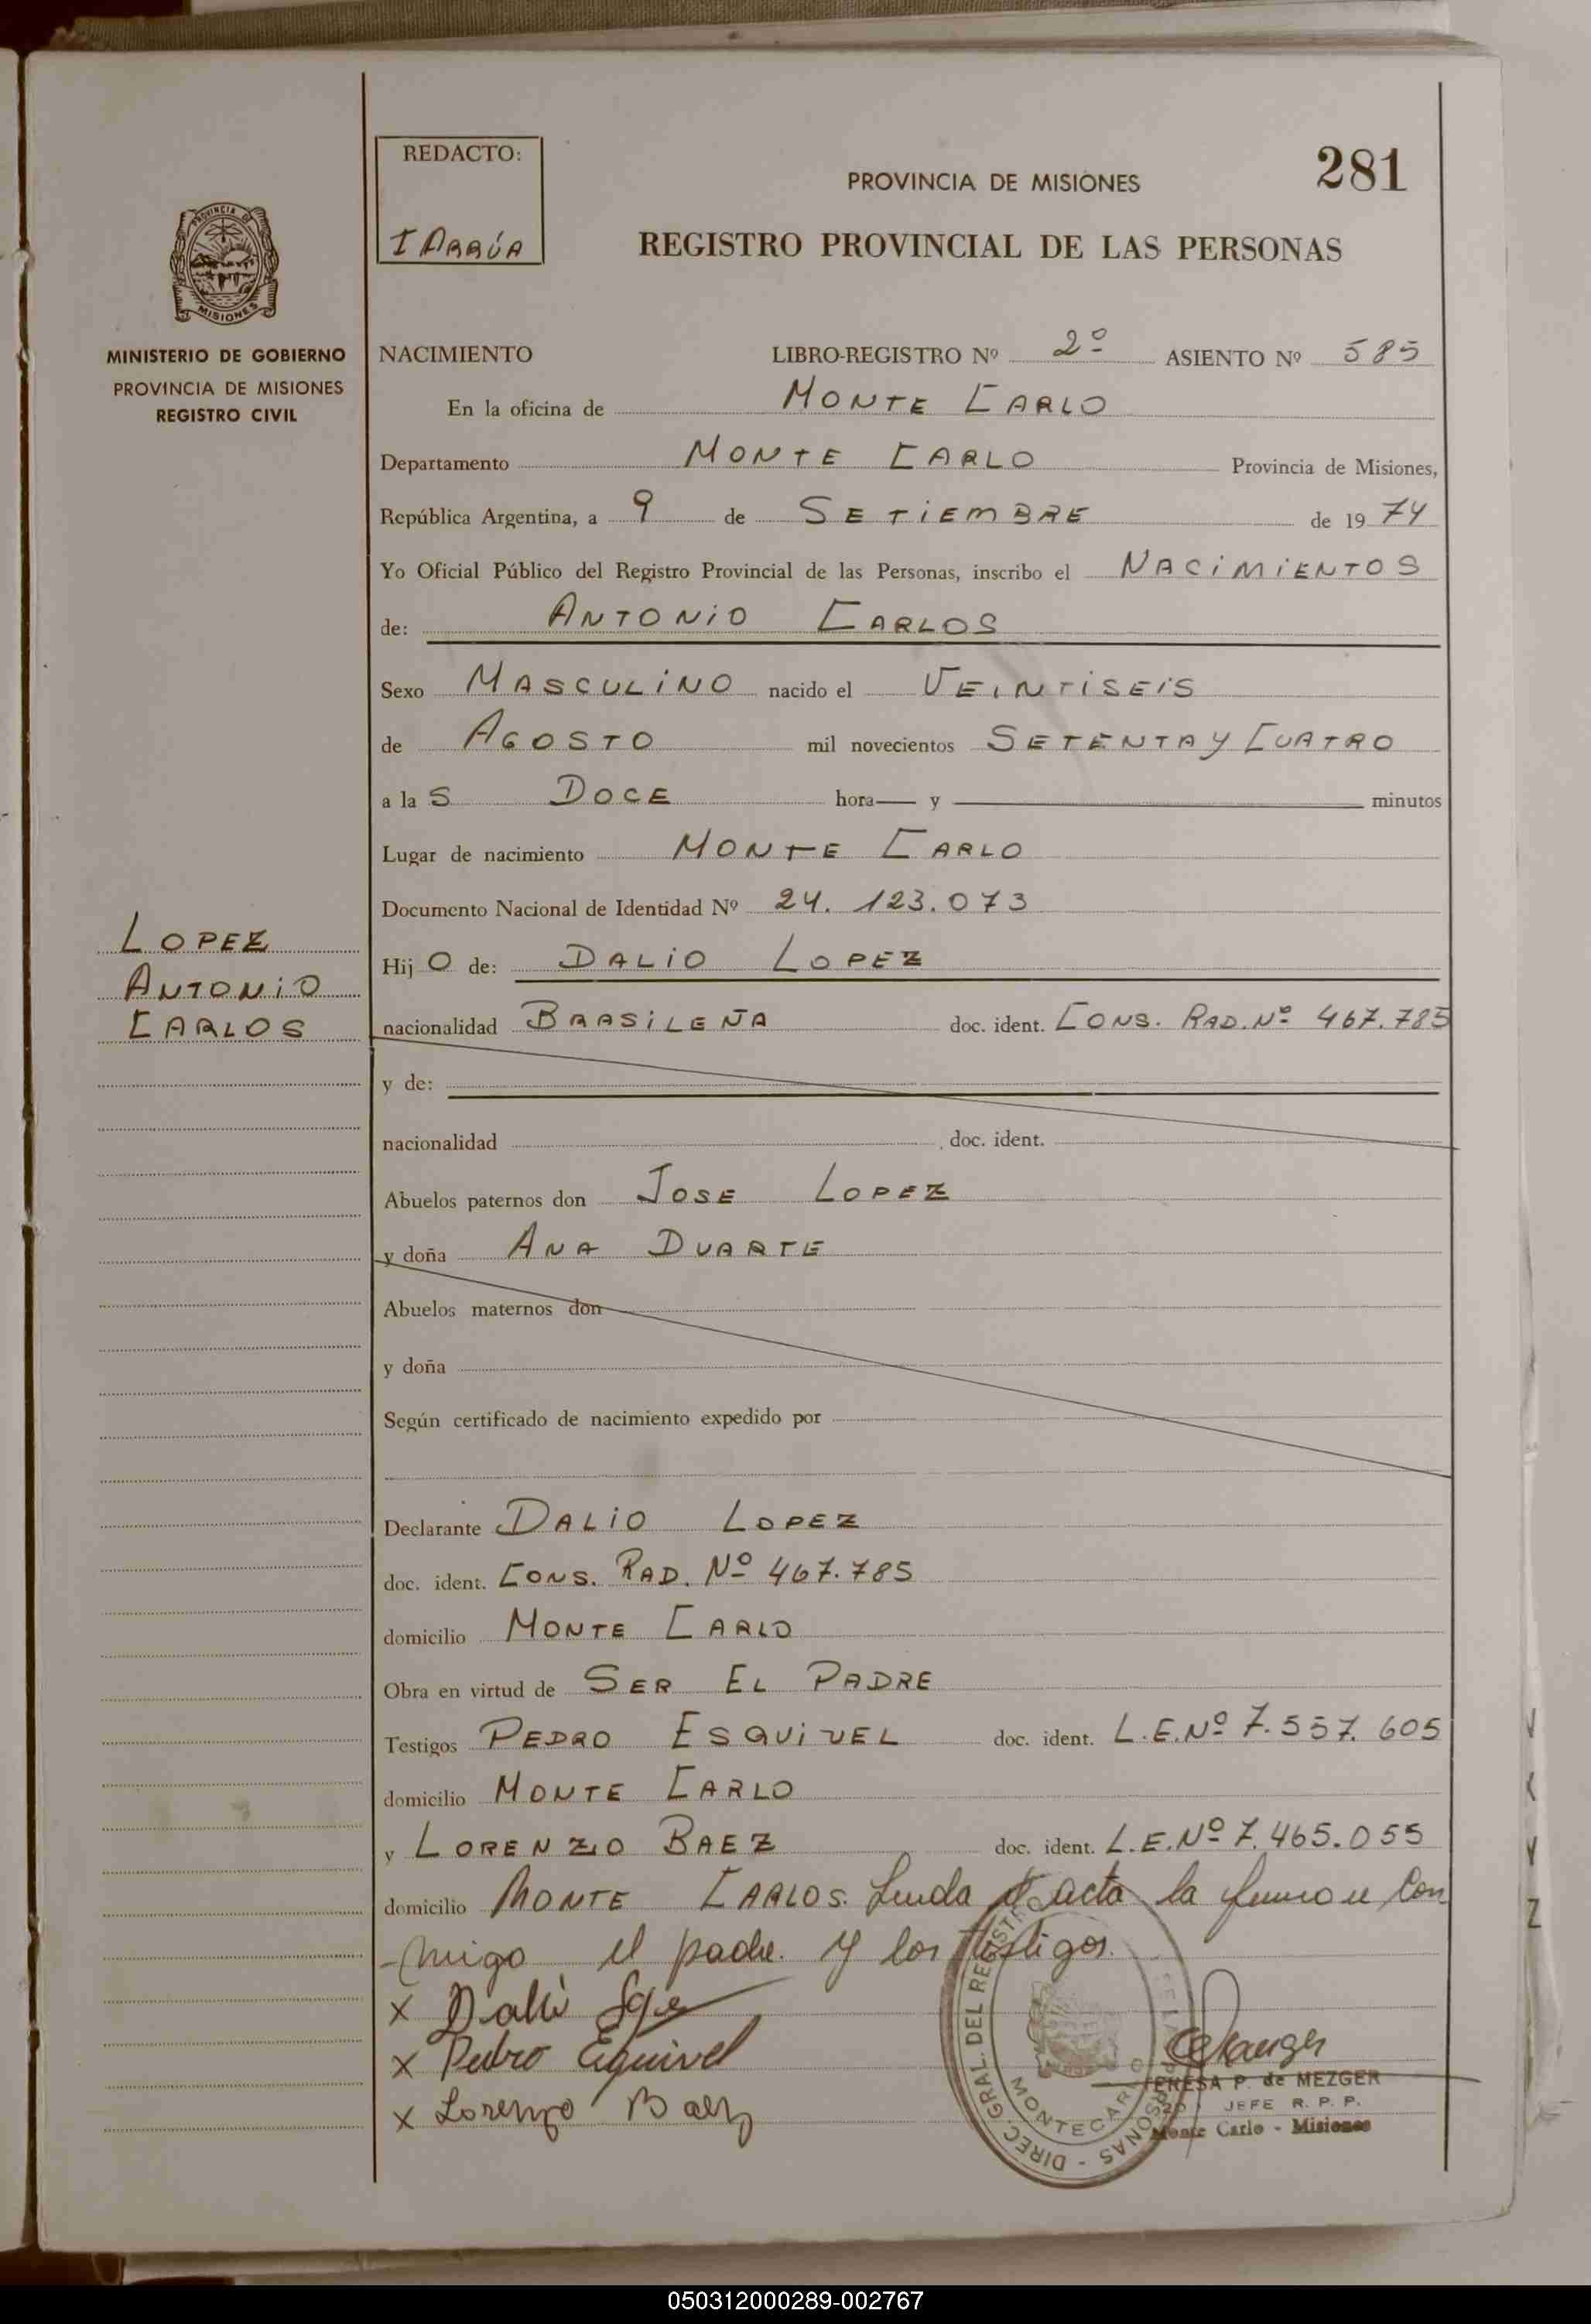 REDACTO:
I ARRÚA
PROVINCIA DE MISIONES
281
REGISTRO PROVINCIAL DE LAS PERSONAS
PROVINCIA DE
MISIONES
MINISTERIO DE GOBIERNO
PROVINCIA DE MISIONES
REGISTRO CIVIL
NACIMIENTO LIBRO-REGISTRO Nº 2º ASIENTO Nº 585
En la oficina de MONTE CARLO
Departamento MONTE CARLO Provincia de Misiones,
República Argentina, a 9 de SETIEMBRE de 19 74
Yo Oficial Público del Registro Provincial de las Personas, inscribo el NACIMIENTOS
de: ANTONIO CARLOS
Sexo MASCULINO nacido el VEINTISEIS
de AGOSTO mil novecientos SETENTA Y CUATRO
a la S DOCE hora y minutos
Lugar de nacimiento MONTE CARLO
Documento Nacional de Identidad Nº 24.123.073
LOPEZ
ANTONIO
CARLOS
Hij O de: DALIO LOPEZ
nacionalidad BRASILEÑA doc. ident. CONS. RAD. Nº 467.785
y de:
nacionalidad doc. ident.
Abuelos paternos don JOSE LOPEZ
y doña ANA DUARTE
Abuelos maternos don
y doña
Según certificado de nacimiento expedido por
Declarante DALIO LOPEZ
doc. ident. CONS. RAD. Nº 467.785
domicilio MONTE CARLO
Obra en virtud de SER EL PADRE
Testigos PEDRO ESQUIVEL doc. ident. L.E.Nº 7.557.605
domicilio MONTE CARLO
y LORENZO BAEZ doc. ident. L.E.Nº 7.465.055
domicilio MONTE CARLOS. Leida el acta la firman con
-migo el padre. y los testigos.
X Dalio Lopez
X Pedro Esquivel
X Lorenzo Baez
DIREC. GRAL. DEL REGISTRO PERSONAS
MONTECARLO
TERESA P. de MEZGER
JEFE R. P. P.
Monte Carlo - Misiones
050312000289-002767